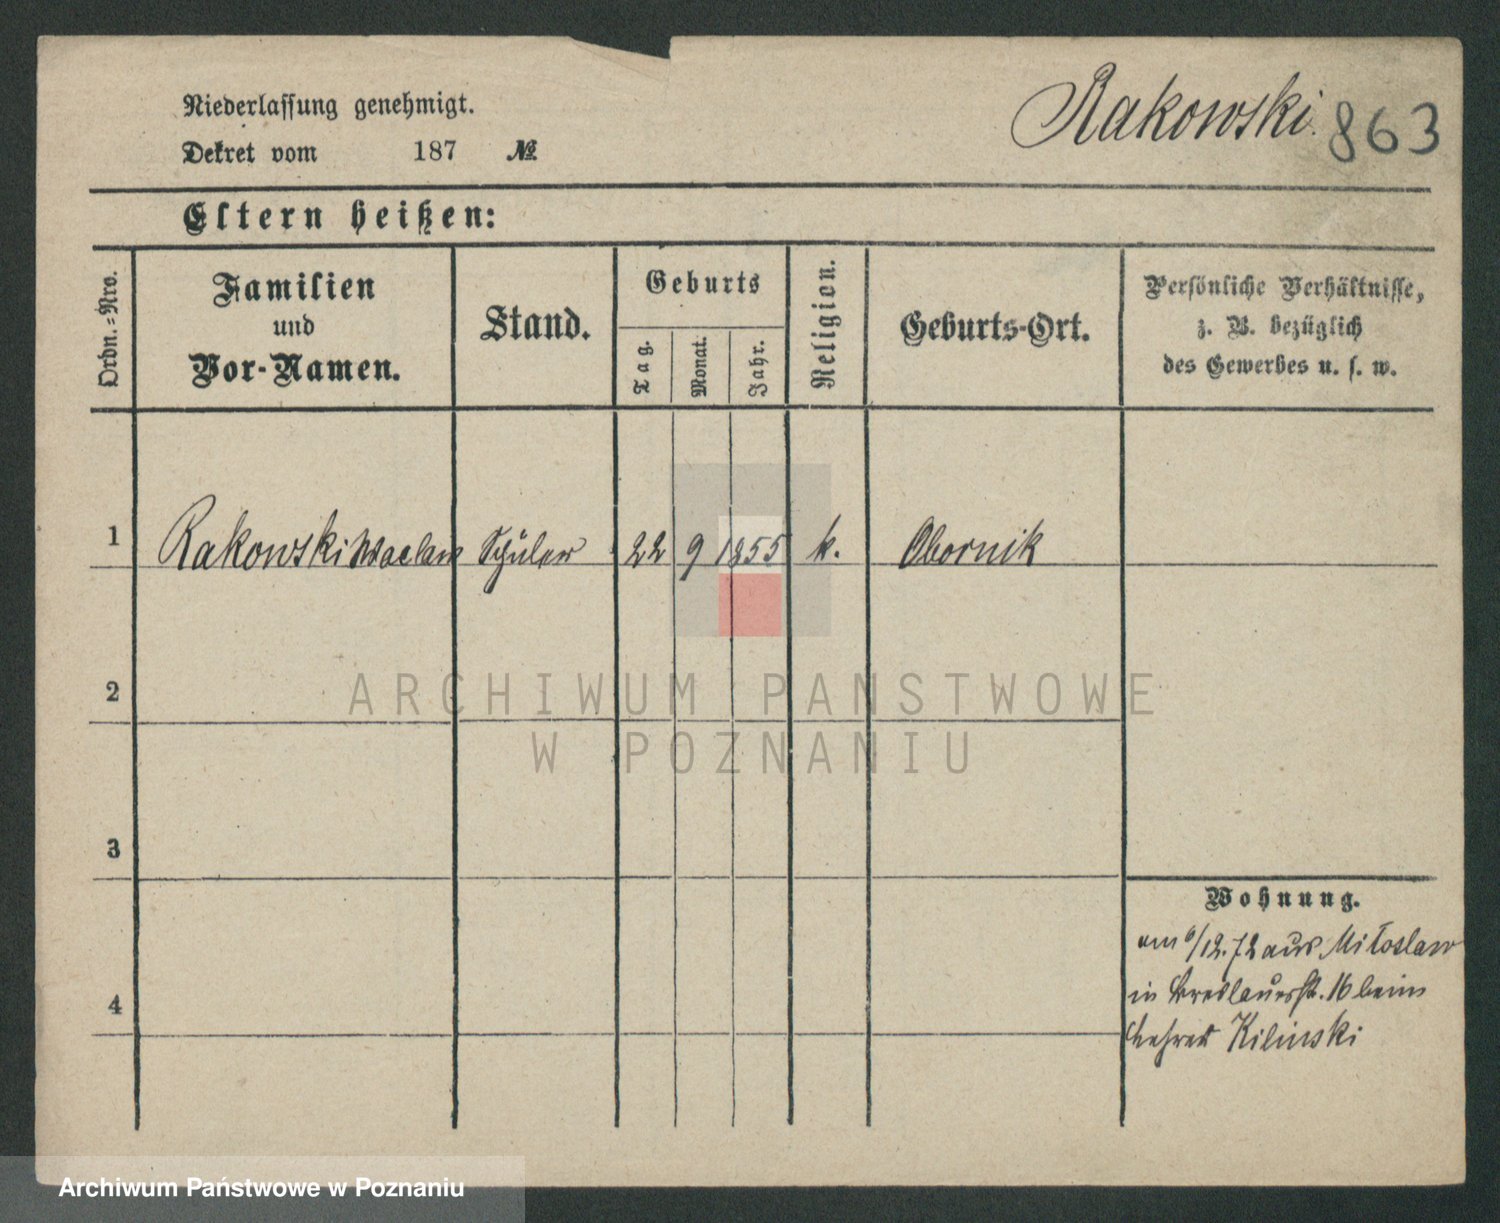 Rakowski. 863
Niederlassung genehmigt.
Dekret vom 187 №
Eltern heißen:
Ordn.-Nro.
Familien
und
Vor-Namen.
Stand.
Geburts
Tag.
Monat.
Jahr.
Religion.
Geburts-Ort.
Persönliche Verhältnisse,
z. B. bezüglich
des Gewerbes u. s. w.
1 Rakowski Waclaw Schüler 22 9 1855 k. Obornik
2
3
4
Wohnung.
am 6/12.72 aus Miłoslaw
in Breslauerstr. 16 beim
Kilinski
ARCHIWUM PAŃSTWOWE
W POZNANIU
Archiwum Państwowe w Poznaniu